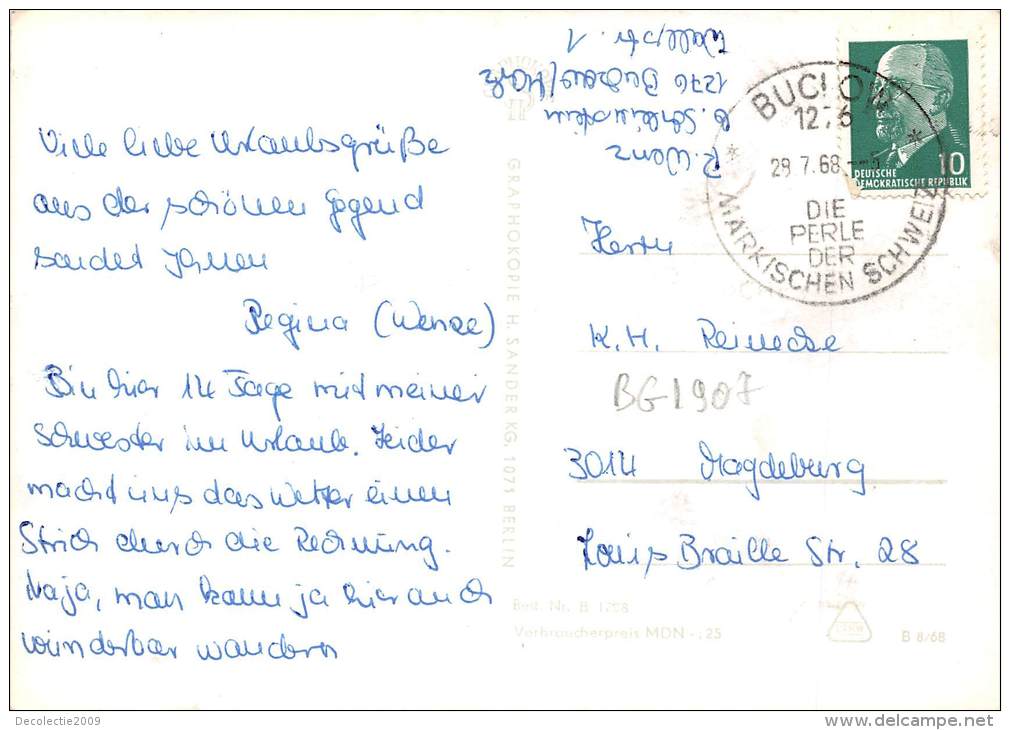 Viele liebe Urlaubsgrüße
aus der schönen Gegend
sendet Ihnen
Regina (Wenze)
Bin hier 14 Tage mit meiner
Schwester im Urlaub. Leider
macht uns das Wetter einen
Strich durch die Rechnung.
Naja, man kann ja hier auch
wunderbar wandern
GRAPHOKOPIE H. SANDER KG, 1071 BERLIN
R. Wenz
1276
Wallstr. 1
BUCKOW
1276
29.7.68
DIE
PERLE
DER
MÄRKISCHEN SCHWEIZ
10
DEUTSCHE
DEMOKRATISCHE REPUBLIK
Herrn
K. H. Reinecke
BG1907
3014 Magdeburg
Louis Braille Str. 28
Best. Nr. B
Verbraucherpreis MDN -,25
B 8/68
Decolectie2009
www.delcampe.net